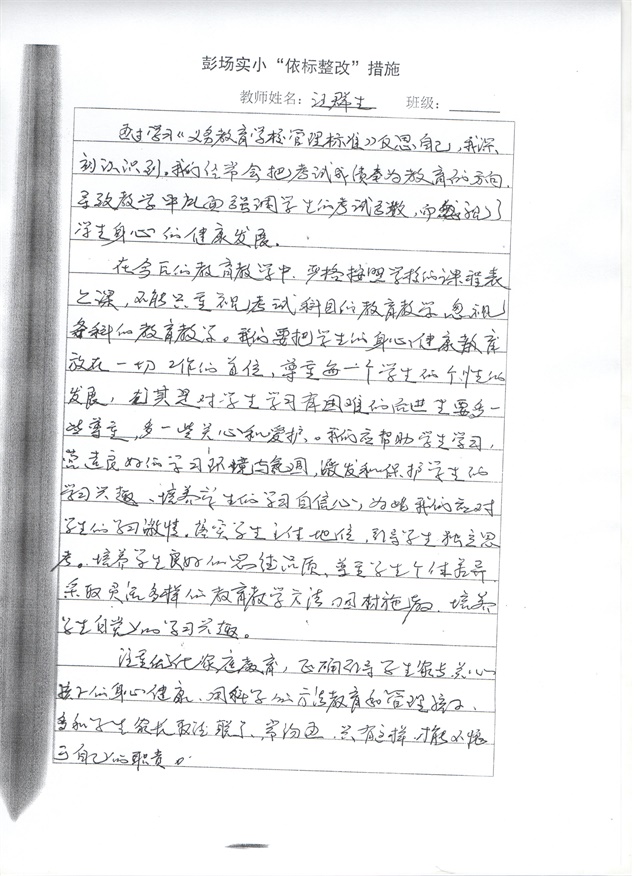 彭场实小“依标整改”措施
教师姓名：汪群生 班级：
通过学习《义务教育学校管理标准》反思自己，我深
刻认识到。我们经常会把考试成绩本为教育的方向，
导致教学中片面强调学生的考试分数，而忽视了
学生身心的健康发展。
在今后的教育教学中，严格按照学校的课程表
上课，不能只重视考试科目的教育教学，忽视
各科的教育教学。我们要把学生的身心健康教育
放在一切工作的首位，尊重每一个学生的个性的
发展，尤其是对学生学习有困难的后进生要多一
些尊重，多一些关心和爱护。我们应帮助学生学习，
营造良好的学习环境与氛围，激发和保护学生的
学习兴趣、培养学生的学习自信心，为此我们应对
学生的学习激情。落实学生主体地位，引导学生独立思
考。培养学生良好的思维品质、尊重学生个体差异
采取灵活多样的教育教学方法因材施教，培养
学生自觉的学习兴趣。
注重家庭教育，正确引导学生家长关心
孩子的身心健康，用科学的方法教育和管理孩子，
多和学生家长取法联系、常沟通，只有这样才能不愧
于自己的职责。